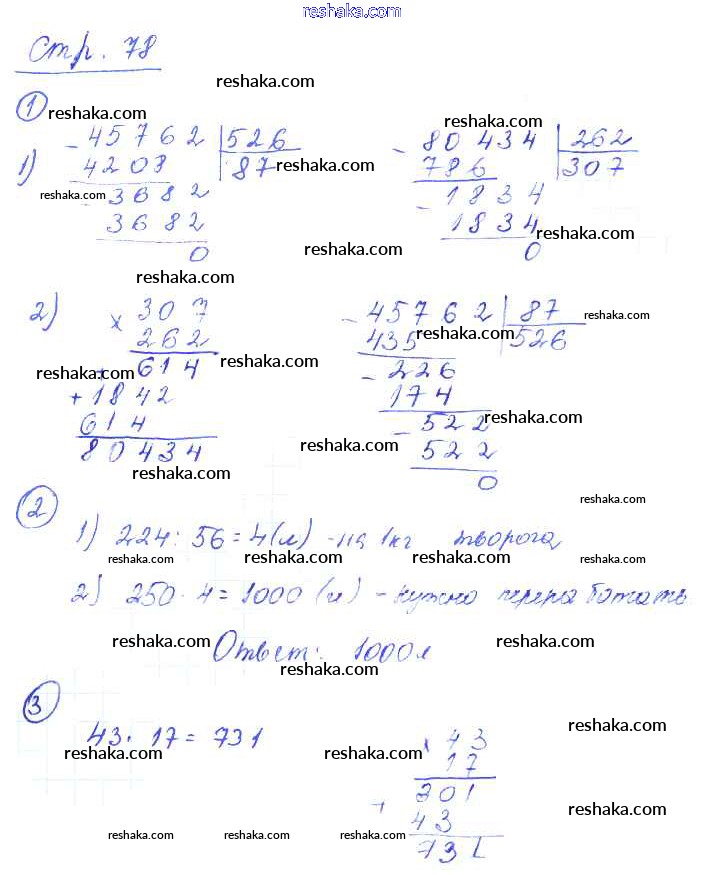 reshaka.com
Стр. 78
reshaka.com
① reshaka.com
1) - 45762 | 526 - 80434 | 262
4208 | 87 reshaka.com 786 | 307
reshaka.com - 3682 - 1834
3682 1834 reshaka.com
0 reshaka.com 0
reshaka.com
2) × 307 - 45762 | 87 reshaka.com
262 435 reshaka.com | 526
reshaka.com + 614 reshaka.com - 226
+ 1842 174
614 - 522 reshaka.com
80434 reshaka.com 522
reshaka.com 0
② reshaka.com
1) 224 : 56 = 4 (л) - на 1кг творога
reshaka.com reshaka.com reshaka.com reshaka.com
2) 250 · 4 = 1000 (л) - нужно переработать
reshaka.com reshaka.com reshaka.com
Ответ: 1000 л
reshaka.com
③
43 · 17 = 731 × 43 reshaka.com
reshaka.com 17 reshaka.com
+ 301
43 reshaka.com
reshaka.com reshaka.com reshaka.com 731